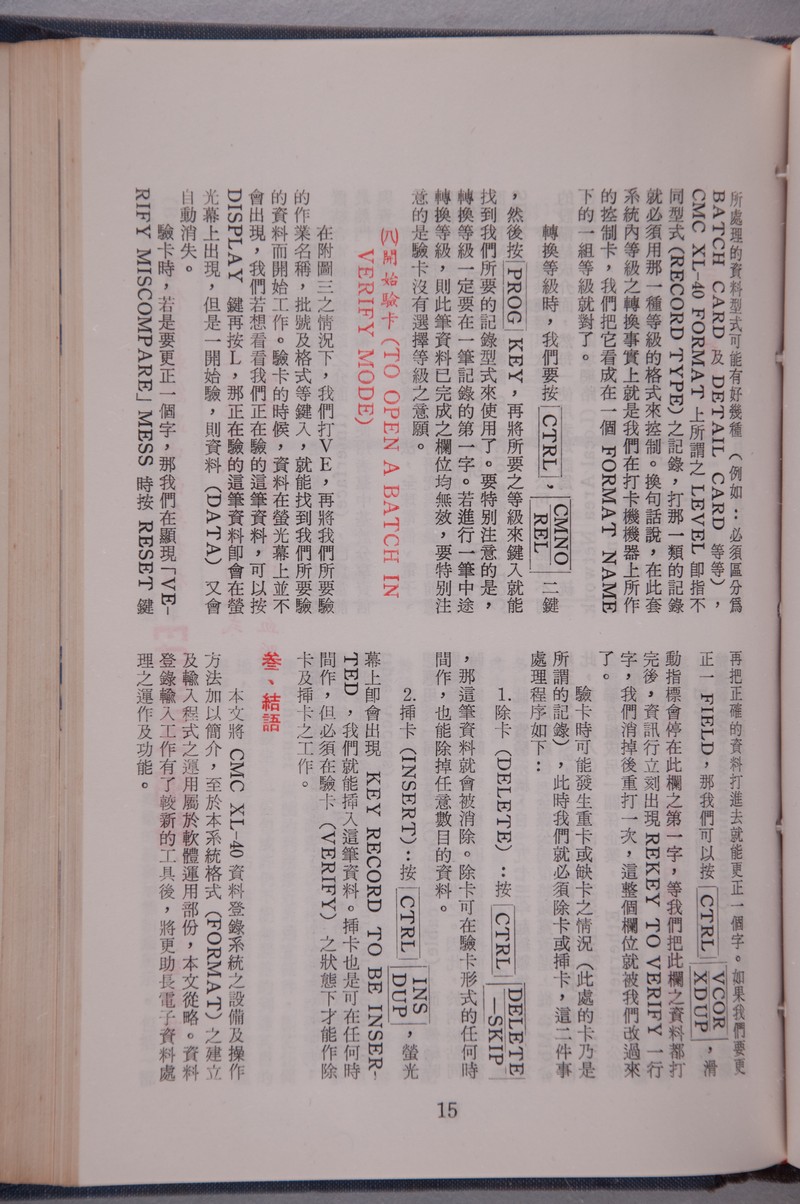 所處理的資料型式可能有好幾種（例如：必須區分爲
BATCH CARD 及 DETAIL CARD 等等），
CMC XL-40 FORMAT 上所謂之 LEVEL 卽指不
同型式（RECORD TYPE）之記錄，打那一類的記錄
就必須用那一種等級的格式來控制。換句話說，在此套
系統內等級之轉換事實上就是我們在打卡機機器上所作
的控制卡，我們把它看成在一個 FORMAT NAME
下的一組等級就對了。
轉換等級時，我們要按 CTRL，CMNO REL 二鍵
，然後按 PROG KEY，再將所要之等級來鍵入就能
找到我們所要的記錄型式來使用了。要特別注意的是，
轉換等級一定要在一筆記錄的第一字。若進行一筆中途
轉換等級，則此筆資料已完成之欄位均無效，要特別注
意的是驗卡沒有選擇等級之意願。
㈧開始驗卡（TO OPEN A BATCH IN
VERIFY MODE）
在附圖三之情況下，我們打ＶＥ，再將我們所要驗
的作業名稱，批號及格式等鍵入，就能找到我們所要驗
的資料而開始工作。驗卡的時候，資料在螢光幕上並不
會出現，我們若想看看我們正在驗的這筆資料，可以按
DISPLAY 鍵再按Ｌ，那正在驗的這筆資料卽會在螢
光幕上出現，但是一開始驗，則資料（DATA）又會
自動消失。
驗卡時，若是要更正一個字，那我們在顯現「VE-
RIFY MISCOMPARE」MESS 時按 RESET 鍵
再把正確的資料打進去就能更正一個字。如果我們要更
正一 FIELD，那我們可以按 CTRL VCOR XDUP，滑
動指標會停在此欄之第一字，等我們把此欄之資料都打
完後，資訊行立刻出現 REKEY TO VERIFY 一行
字，我們消掉後重打一次，這整個欄位就被我們改過來
了。
驗卡時可能發生重卡或缺卡之情況（此處的卡乃是
所謂的記錄），此時我們就必須除卡或挿卡，這二件事
處理程序如下：
1. 除卡（DELETE）：按 CTRL DELETE —SKIP
，那這筆資料就會被消除。除卡可在驗卡形式的任何時
間作，也能除掉任意數目的資料。
2. 挿卡（INSERT）：按 CTRL INS DUP，螢光
幕上卽會出現 KEY RECORD TO BE INSER-
TED，我們就能挿入這筆資料。挿卡也是可在任何時
間作，但必須在驗卡（VERIFY）之狀態下才能作除
卡及挿卡之工作。
叁、結語
本文將 CMC XL-40 資料登錄系統之設備及操作
方法加以簡介，至於本系統格式（FORMAT）之建立
及輸入程式之運用屬於軟體運用部份，本文從略。資料
登錄輸入工作有了較新的工具後，將更助長電子資料處
理之運作及功能。
15